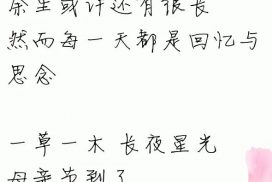 余生或许还有很长
然而每一天都是回忆与
思念
一草一木 长夜星光
母亲节到了